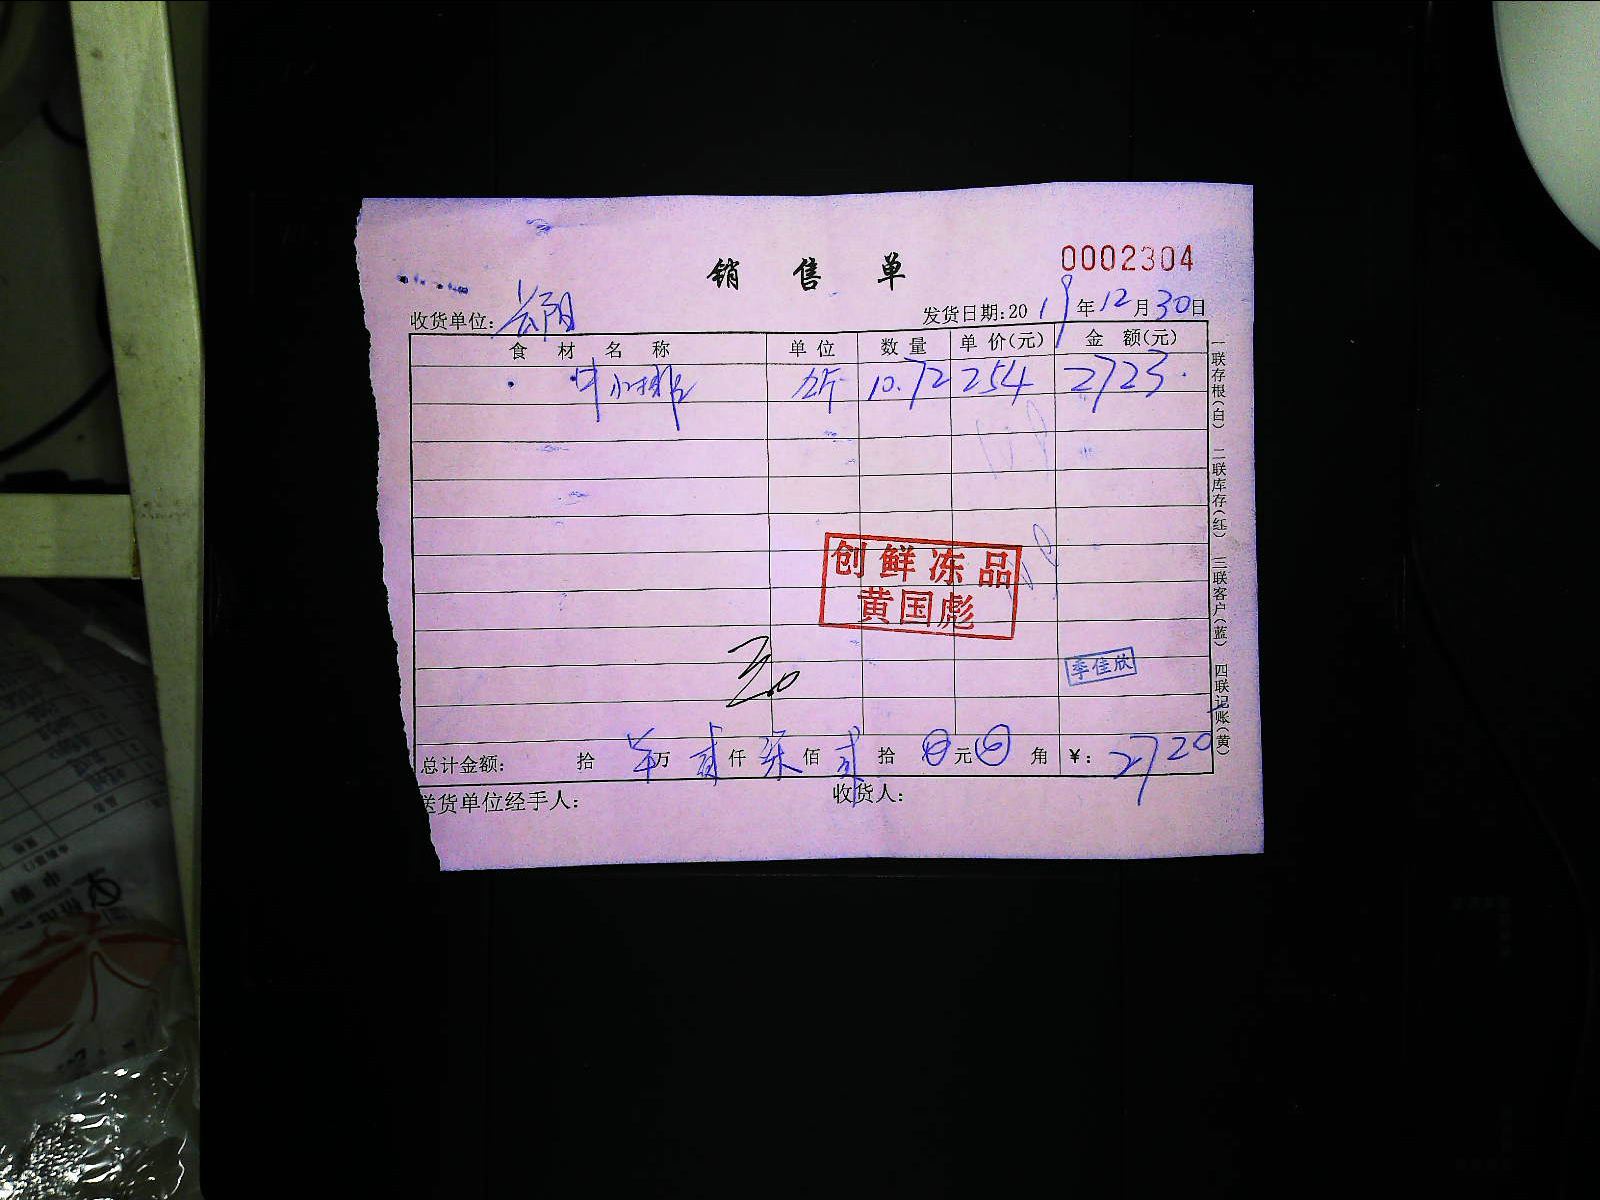 销售单
0002304
收货单位: 云阳
发货日期:2019年12月30日
食材名称 单位 数量 单价(元) 金额(元)
牛小排 公斤 10.72 254 2723.
创鲜冻品
黄国彪
李佳欣
总计金额: 拾 万 贰仟 柒佰 贰拾 元 角 ¥: 2720
送货单位经手人:
收货人:
一联存根(白) 二联库存(红) 三联客户(蓝) 四联记账(黄)